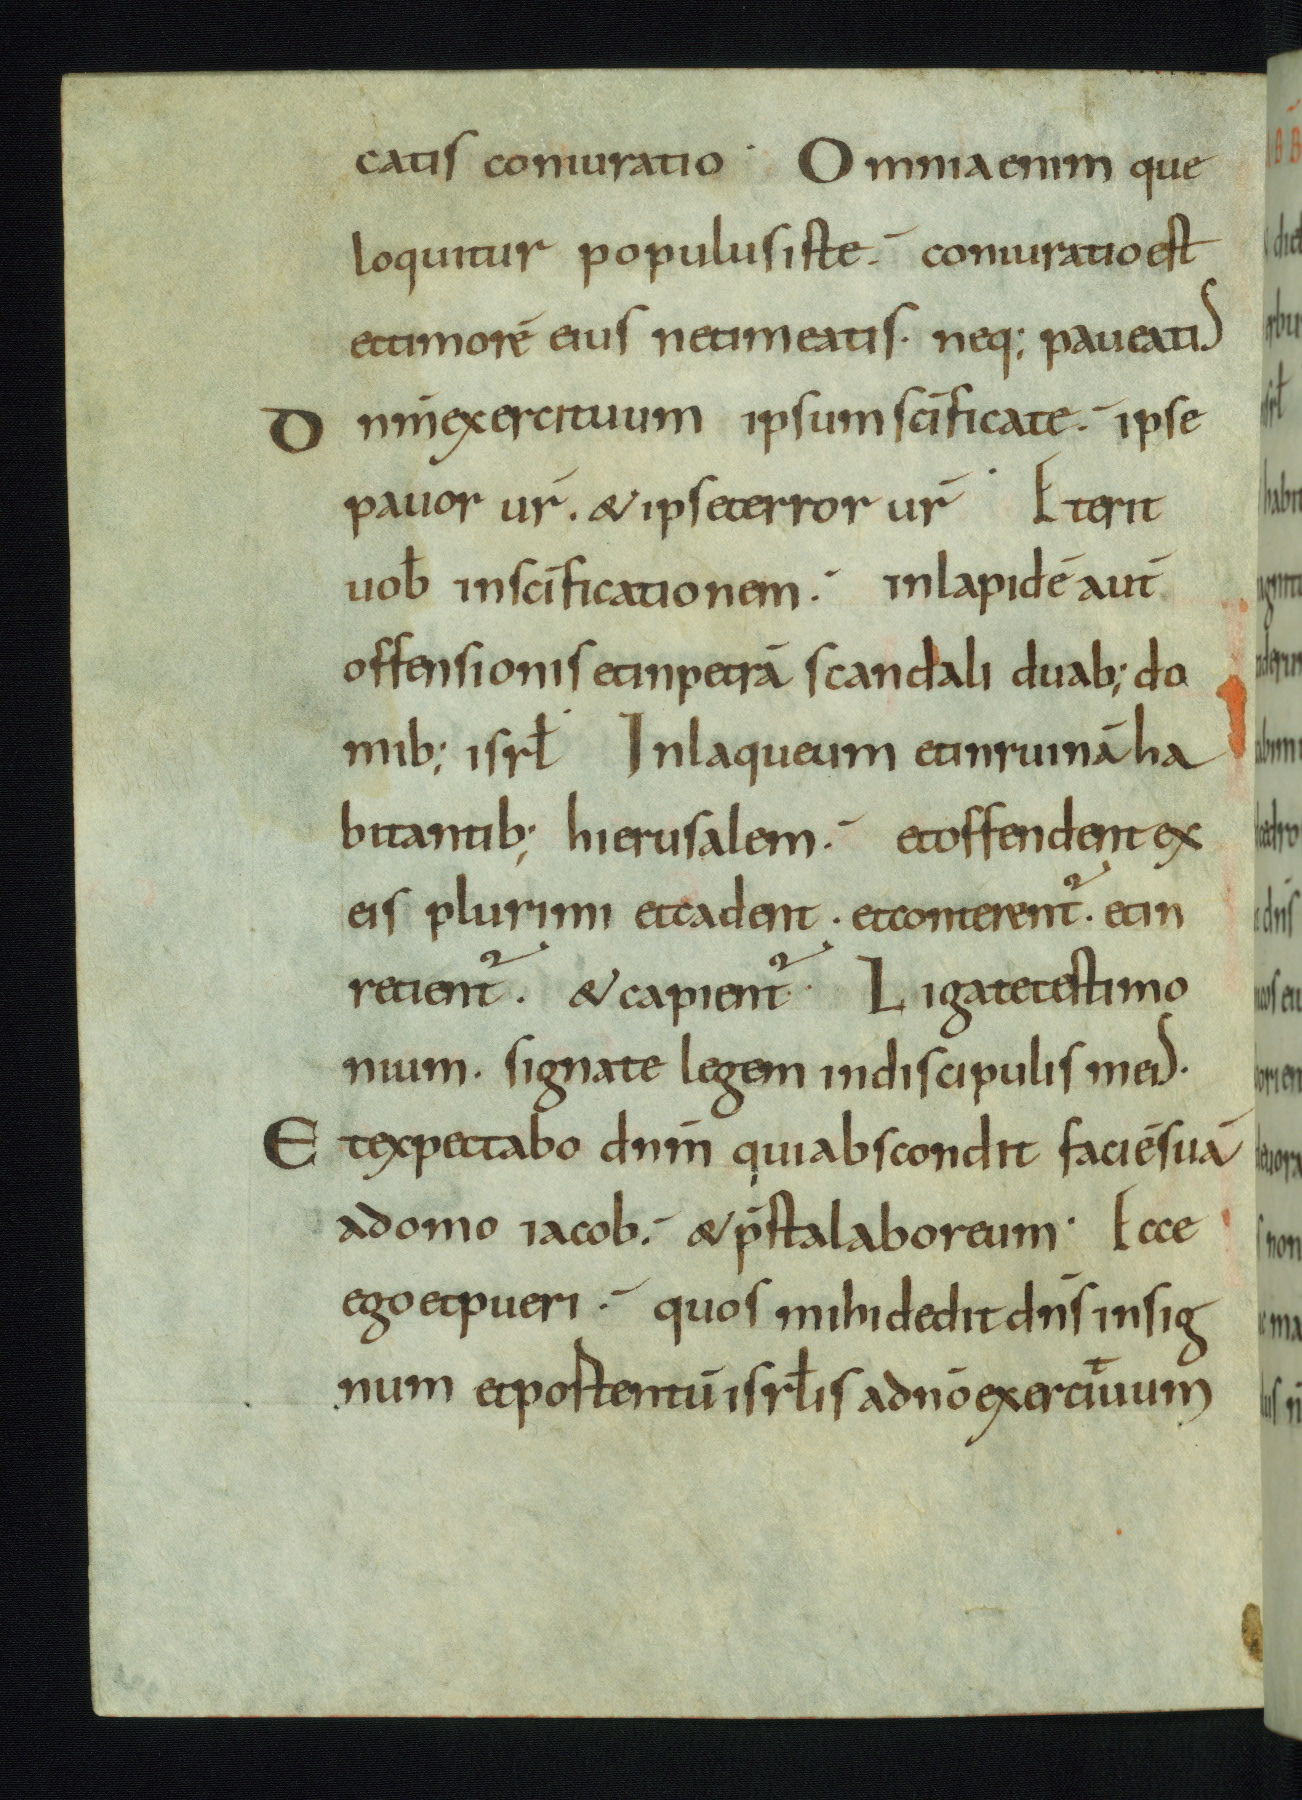 catis coniuratio · Omnia enim que
loquitur populus iste. coniuratio est
et timorē eius ne timeatis. neq; paueatis
Dnm̄ exercituum ipsum sc̄ificate. ipse
pauor ur̄. & ipse terror ur̄ · Et erit
uob̄ in sc̄ificationem. in lapidē aut̄
offensionis et in petrā scandali duab; do
mib; isrƚ · In laqueum et in ruinā ha
bitantib; hierusalem. et offendent ex
eis plurimi et cadent. et conterent᷑. et in
retient᷑. & capient᷑. Ligate testimo
nium. signate legem in discipulis meis.
Et expectabo dnm̄ qui abscondit faciē suā
a domo iacob. & p̄stalabor eum · Ecce
ego et pueri. quos mihi dedit dn̄s in sig
num et postentū isrƚis a dn̄o exercituum